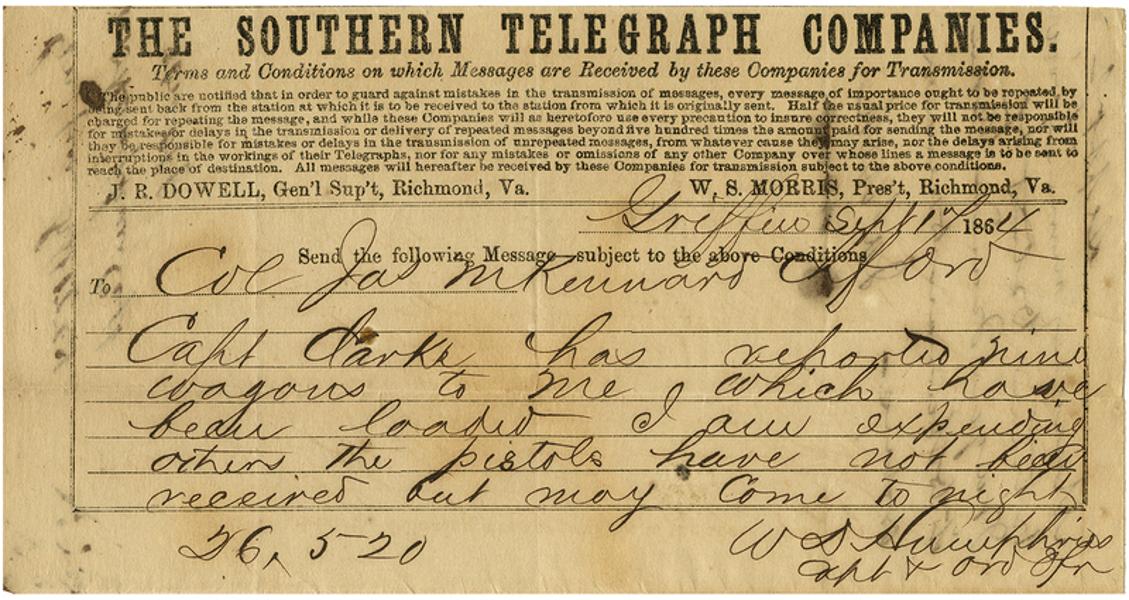 THE SOUTHERN TELEGRAPH COMPANIES.
Terms and Conditions on which Messages are Received by these Companies for Transmission.
The public are notified that in order to guard against mistakes in the transmission of messages, every message of importance ought to be repeated by
being sent back from the station at which it is to be received to the station from which it is originally sent. Half the usual price for transmission will be
charged for repeating the message, and while these Companies will as heretofore use every precaution to insure correctness, they will not be responsible
for mistakes or delays in the transmission or delivery of repeated messages beyond five hundred times the amount paid for sending the message, nor will
they be responsible for mistakes or delays in the transmission of unrepeated messages, from whatever cause they may arise, nor the delays arising from
interruptions in the workings of their Telegraphs, nor for any mistakes or omissions of any other Company over whose lines a message is to be sent to
reach the place of destination. All messages will hereafter be received by these Companies for transmission subject to the above conditions.
J. R. DOWELL, Gen'l Sup't, Richmond, Va. W. S. MORRIS, Pres't, Richmond, Va.
Griffin Sept 1864
Send the following Message subject to the above Conditions
To Col Jas McKennard Ord
Capt Clarke has reported nine
wagons to me which have
been loaded I am expending
others the pistols have not been
received but may come to night
26, 520 W S Humphries
Capt & Ord Ofr